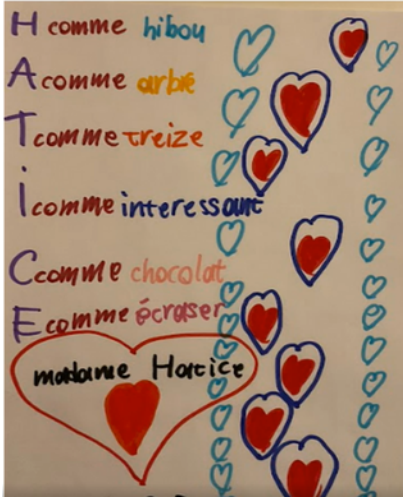 H comme hibou
A comme arbre
T comme treize
I comme interessant
C comme chocolat
E comme écraser
madame Hatice